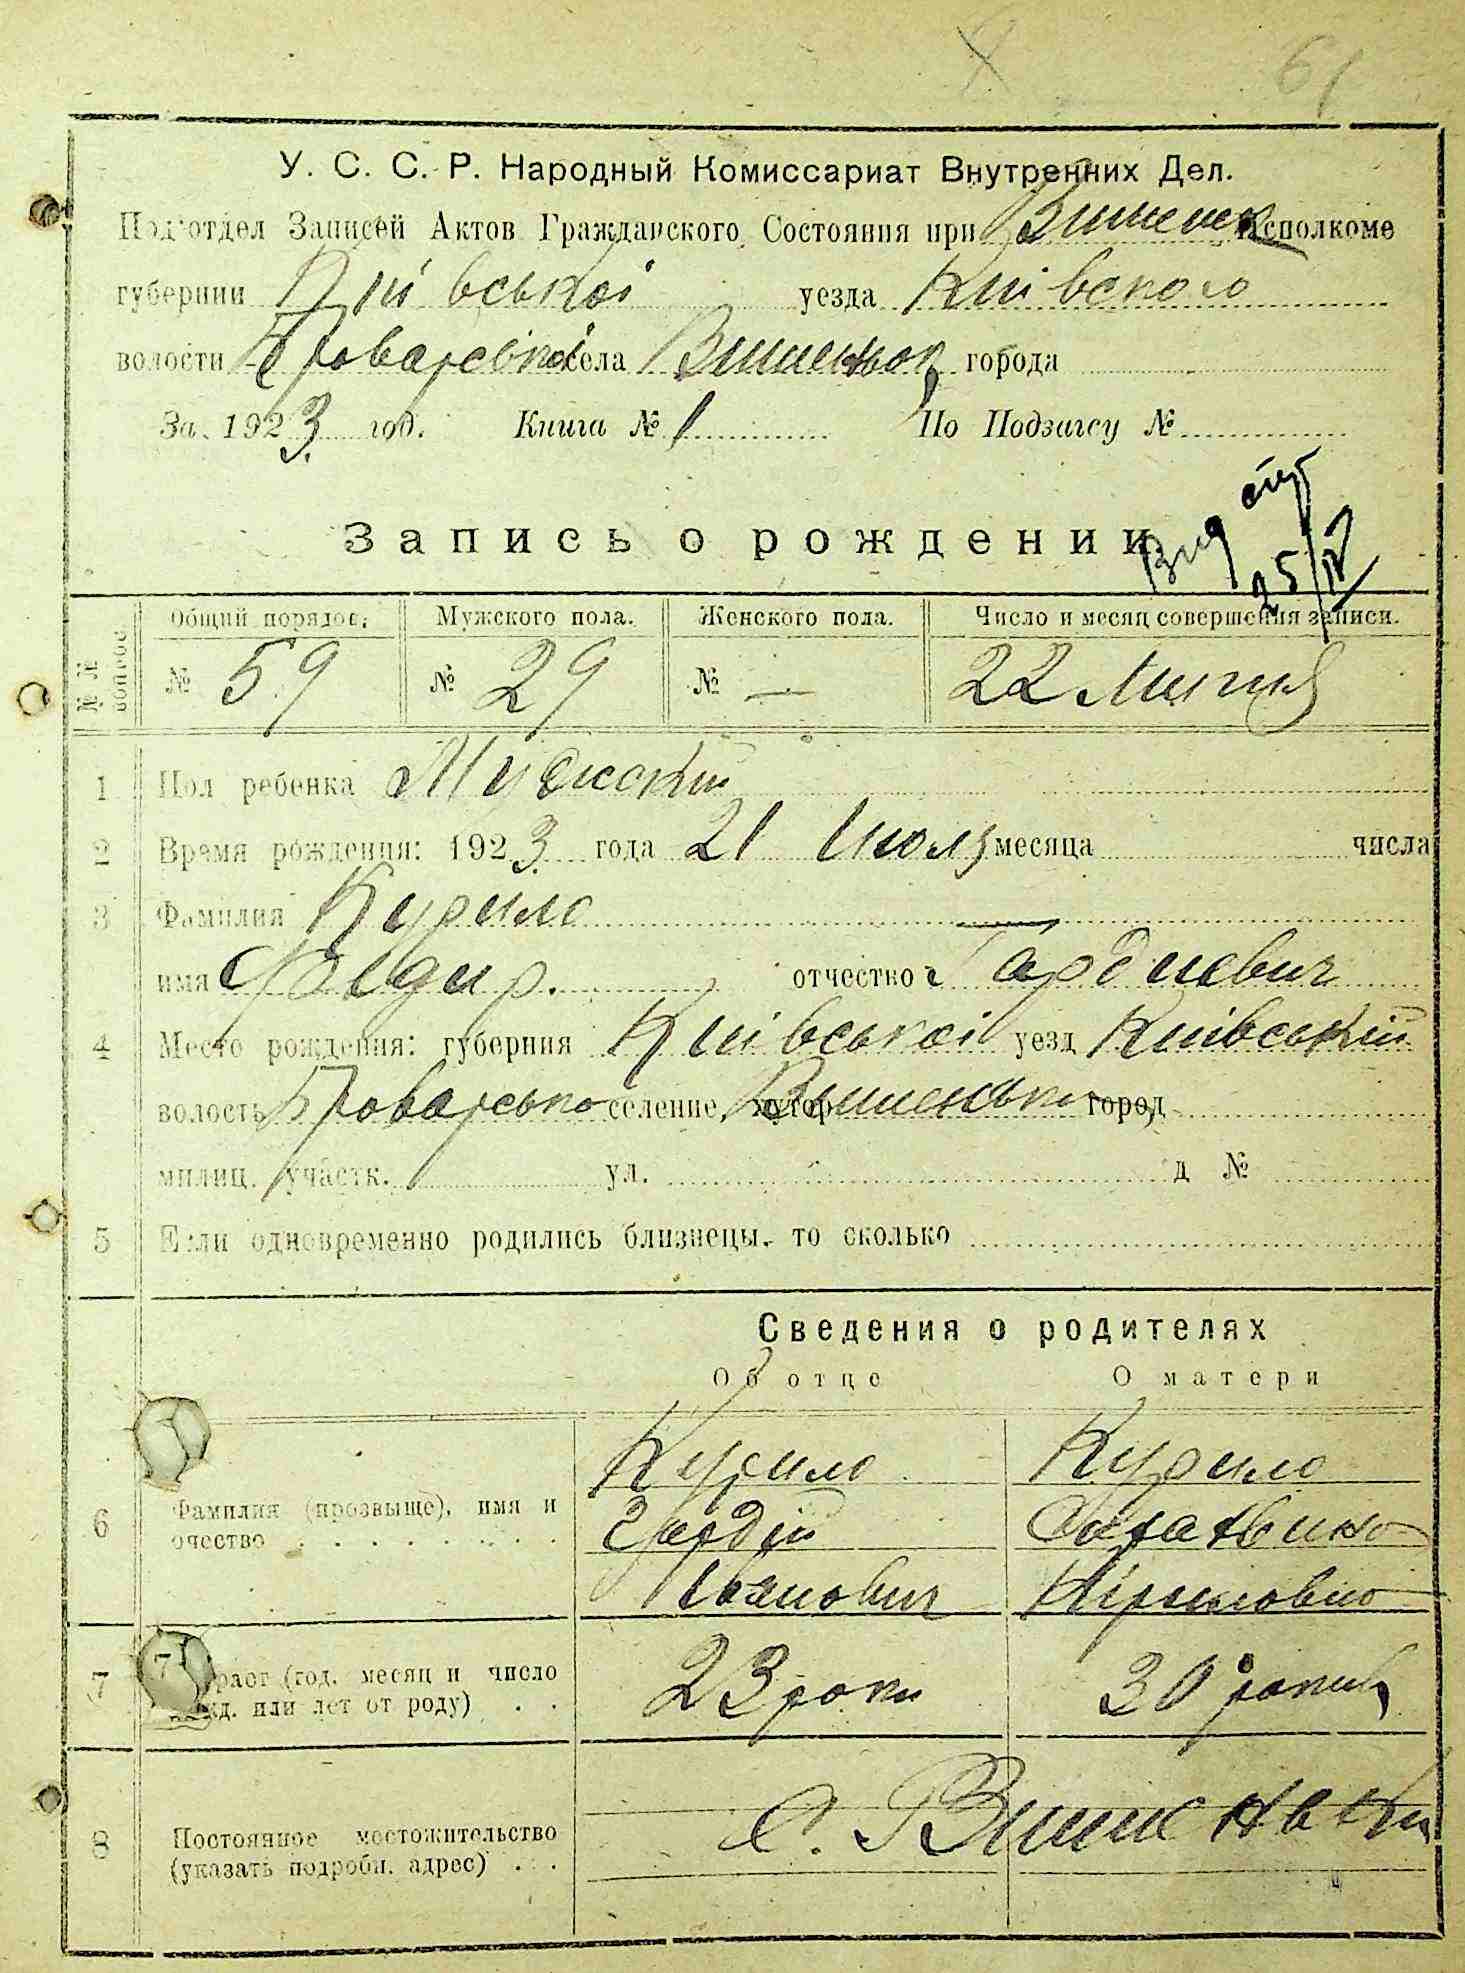 61
У. С. С. Р. Народный Комиссариат Внутренних Дел.
Под'отдел Записей Актов Гражданского Состояния при Вишеньк Исполкоме
губернии Київської уезда Київского
волости Броварської села Вишеньок города
За 1923 год. Книга № 1 По Подзагсу №
Запись о рождении
25/IV
№№ вопросо
Общий порядов. Мужского пола. Женского пола. Число и месяц совершения записи.
№ 59 № 29 № — 22 Липня
1 Пол ребенка Мужский
2 Время рождения: 1923 года 21 Июля месяца числа
3 Фамилия Курило
имя Федир. отчество Гордиевич
4 Место рождения: губерния Київської уезд Київський
волость Броварсько селение, хутор Вишеньки город
милиц. участк. ул. д №
5 Если одновременно родились близнецы, то сколько
Сведения о родителях
Об отце О матери
6 Фамилия (прозвыще), имя и очество
Курило Курило
Гордій
Іванович Кириловно
7 раст (год, месяц и число жд. или лет от роду) 23 роки 30 років
8 Постоянное местожительство (указать подробн. адрес) с. Вишеньки